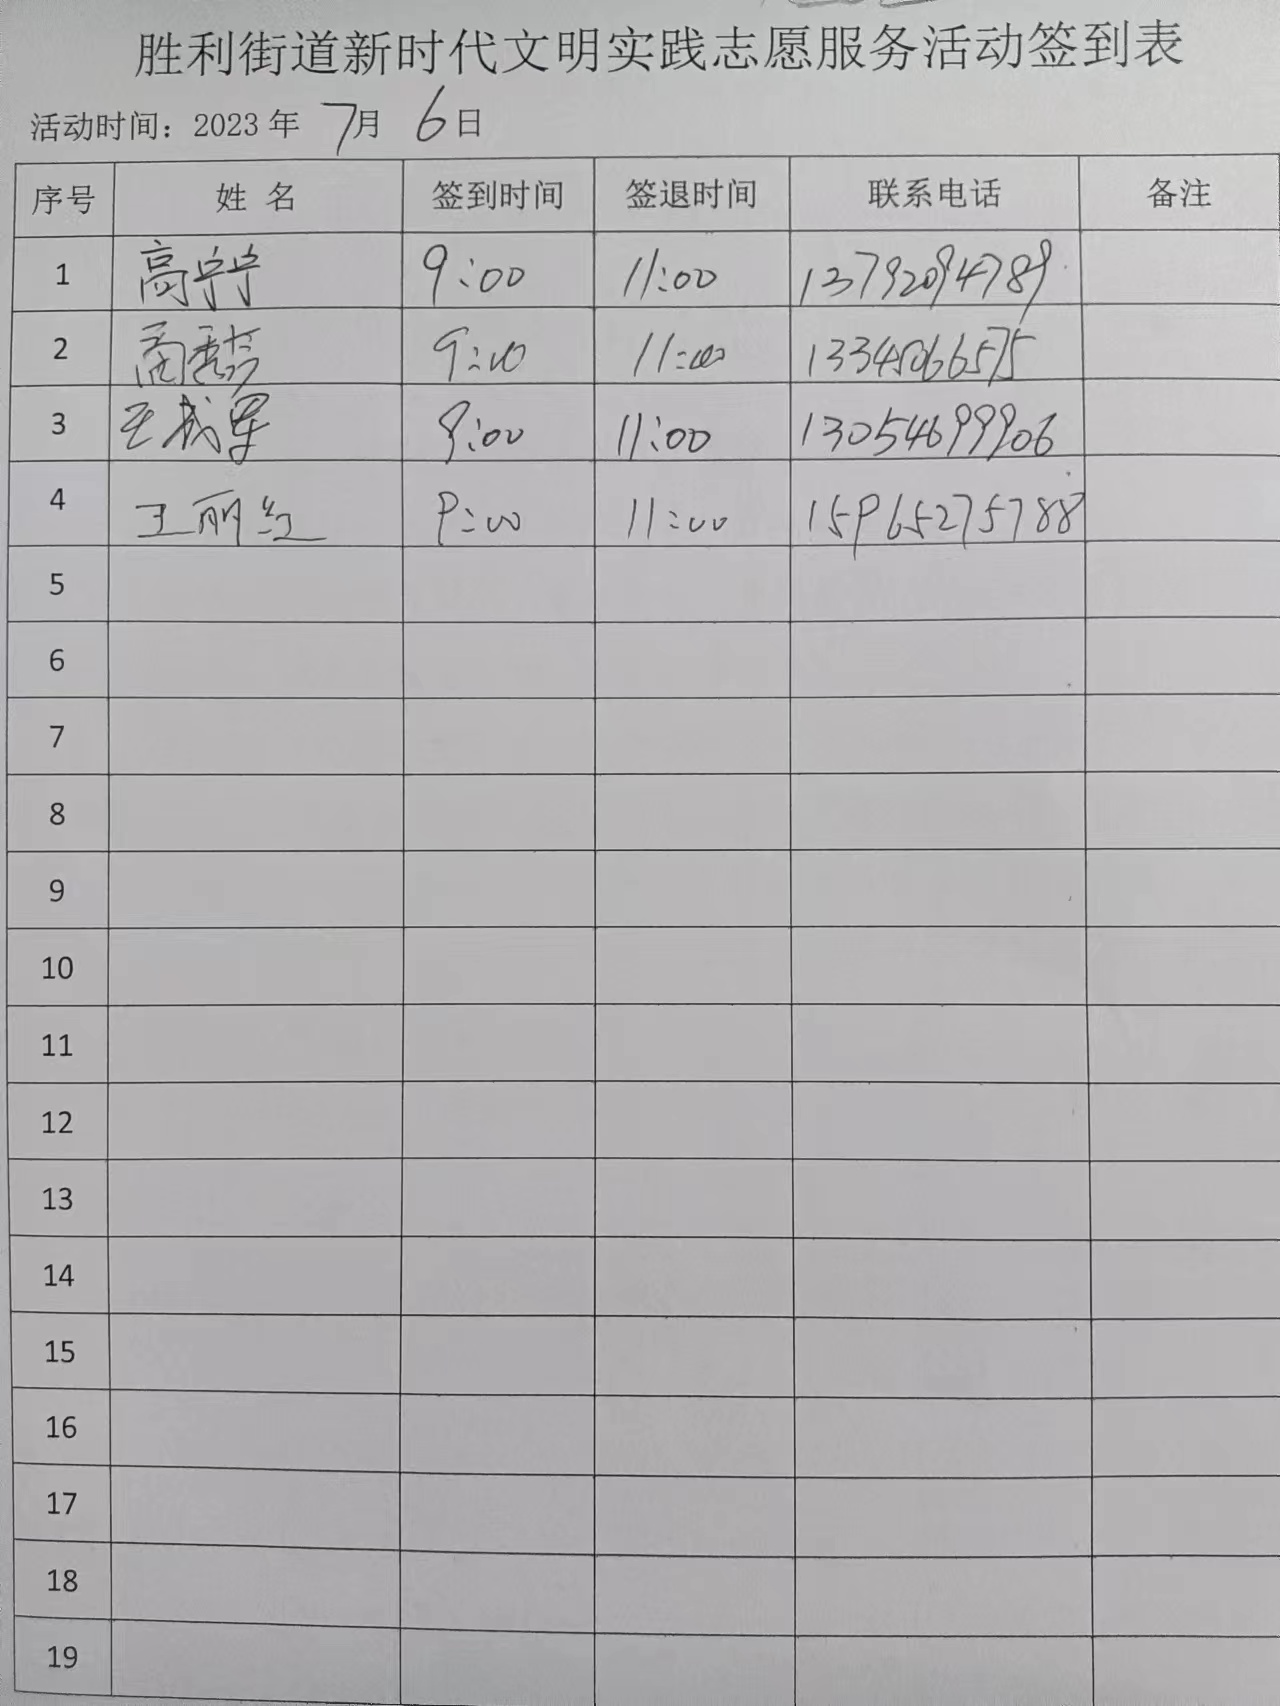 胜利街道新时代文明实践志愿服务活动签到表
活动时间：2023 年 7月 6日
序号 姓 名 签到时间 签退时间 联系电话 备注
1 高宁宁 9:00 11:00 13792094789
2 9:00 11:00 13345066575
3 王成军 9:00 11:00 13054699906
4 王丽红 9:00 11:00 15965275788
5
6
7
8
9
10
11
12
13
14
15
16
17
18
19